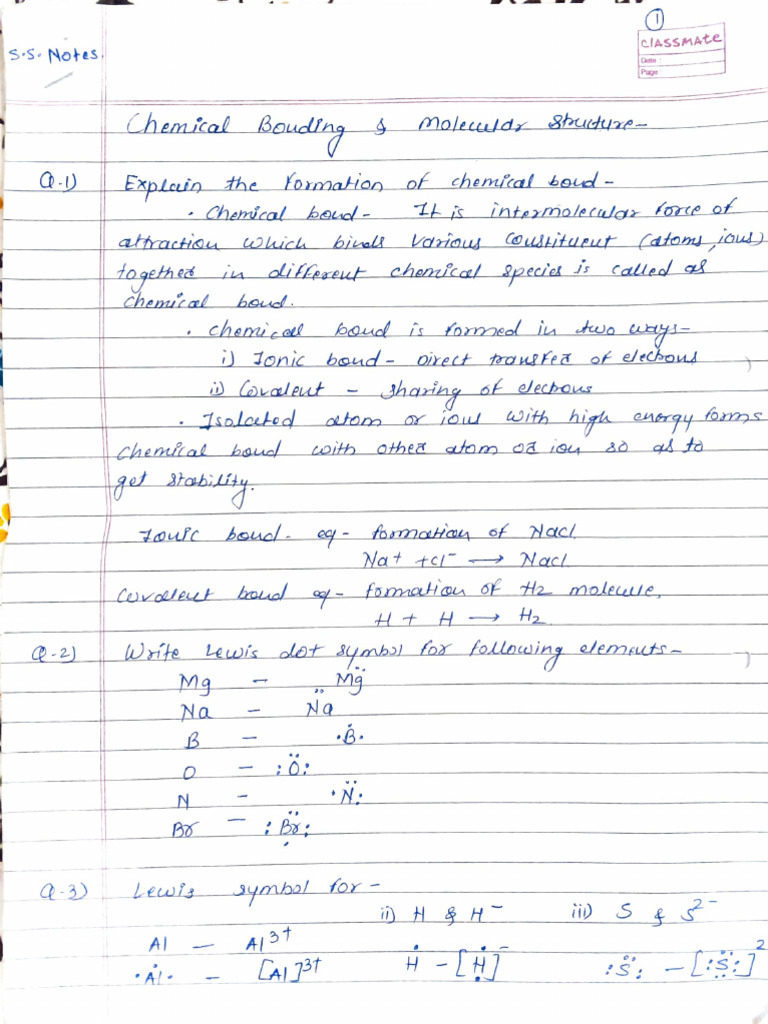 1
CLASSMATE
Date :
Page :
S.S. Notes.
Chemical Bonding & Molecular structure-
Q.1) Explain the formation of chemical bond-
• Chemical bond - It is intermolecular force of
attraction which binds various constituent (atoms, ions)
together in different chemical species is called as
chemical bond.
• chemical bond is formed in two ways-
i) Ionic bond - Direct transfer of electrons
ii) Covalent - sharing of electrons
• Isolated atom or ions with high energy forms
chemical bond with other atom or ion so as to
get stability.
Ionic bond - eg - formation of NaCl.
Na⁺ + Cl⁻ → NaCl
Covalent bond eg - formation of H₂ molecule,
H + H → H₂
Q.2) Write Lewis dot symbol for following elements -
Mg - Mg̈
Na - ¨Na
B - ·Ḃ·
O - :Ö:
N - ·N̈:
Br - :Br̤̈:
Q.3) Lewis symbol for -
ii) H & H⁻ iii) S & S²⁻
Al - Al³⁺
·Ȧl· - [Al]³⁺ Ḣ - [Ḥ̇]⁻ :S̈: - [:S̤̈:]²